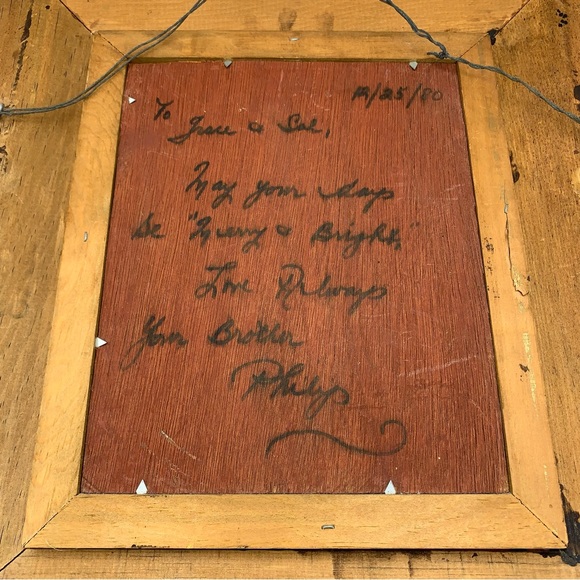 12/25/80
To
Grace & Sal,
May your days
Be "Merry & Bright,"
Love Always
Your Brother
Philip